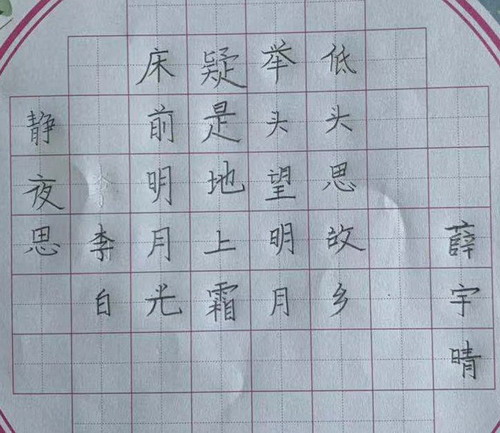 静夜思
李白
床前明月光
疑是地上霜
举头望明月
低头思故乡
薛宇晴